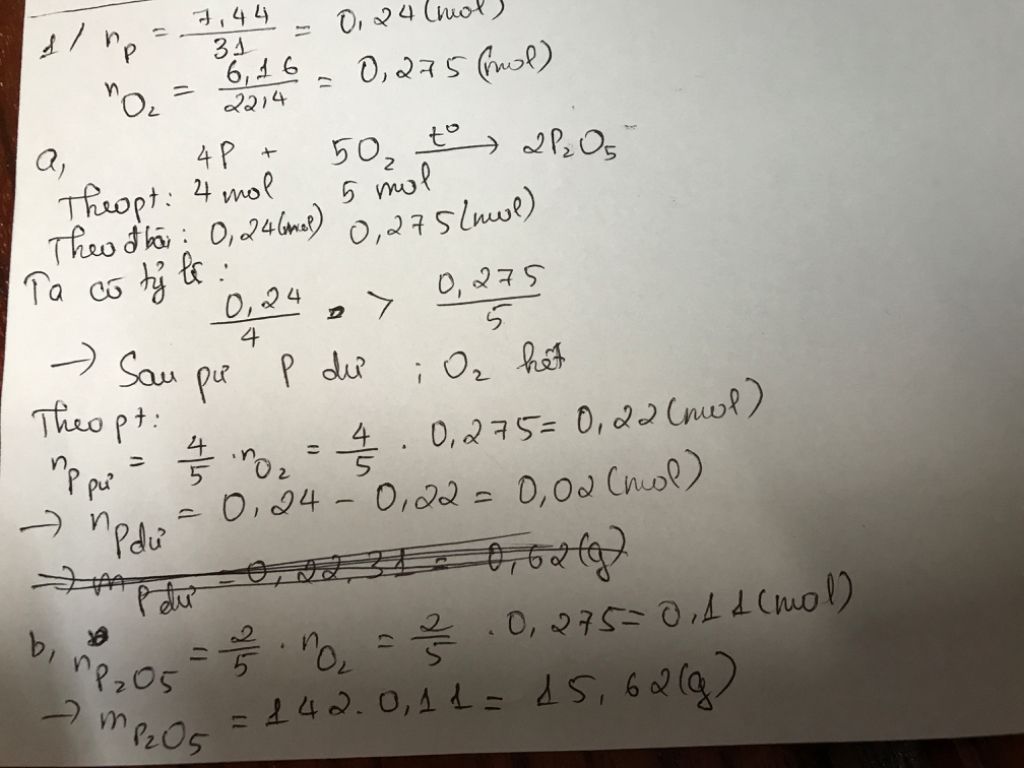 1/ n_P = 7,44/31 = 0,24 (mol)
n_O2 = 6,16/22,4 = 0,275 (mol)
a, 4P + 5O2 t° → 2P2O5
Theo pt: 4 mol 5 mol
Theo đbài: 0,24 (mol) 0,275 (mol)
Ta có tỷ lệ:
0,24/4 > 0,275/5
→ Sau pư P dư ; O2 hết
Theo pt:
n_P pư = 4/5 . n_O2 = 4/5 . 0,275 = 0,22 (mol)
→ n_P dư = 0,24 - 0,22 = 0,02 (mol)
→ m_P dư = 0,22.31 = 0,62 (g)
b, n_P2O5 = 2/5 . n_O2 = 2/5 . 0,275 = 0,11 (mol)
→ m_P2O5 = 142. 0,11 = 15,62 (g)